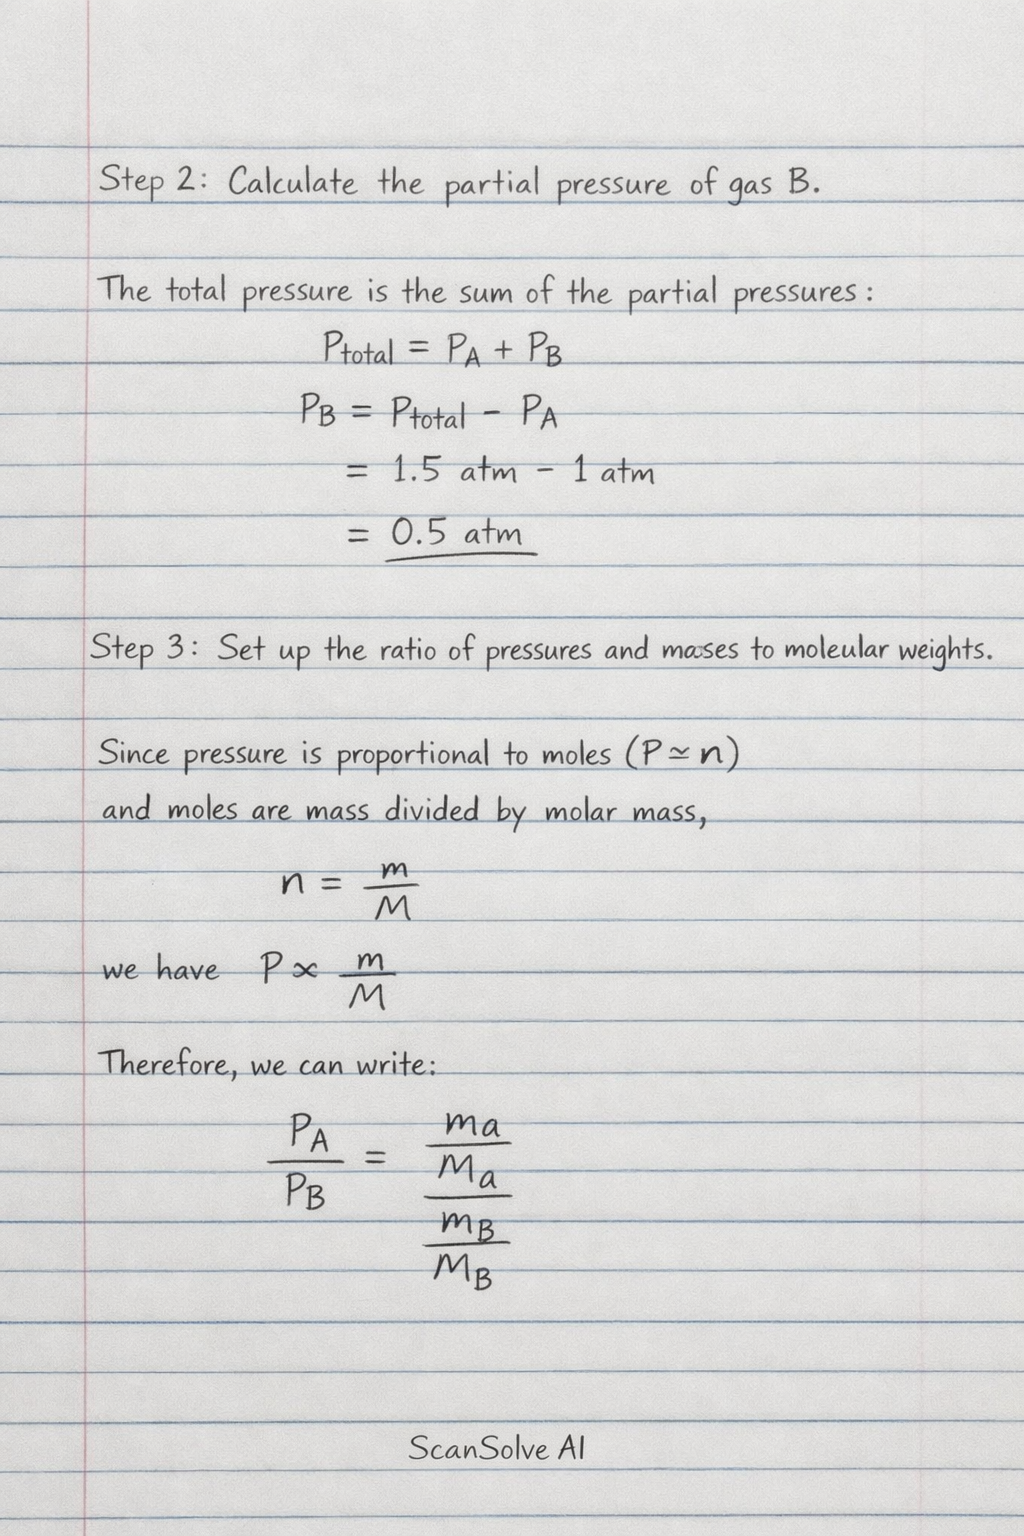 Step 2: Calculate the partial pressure of gas B.
The total pressure is the sum of the partial pressures:
Ptotal = PA + PB
PB = Ptotal - PA
= 1.5 atm - 1 atm
= 0.5 atm
Step 3: Set up the ratio of pressures and masses to moleular weights.
Since pressure is proportional to moles (P ≃ n)
and moles are mass divided by molar mass,
n = m/M
we have P ∝ m/M
Therefore, we can write:
PA/PB = (ma/Ma)/(mB/MB)
ScanSolve AI